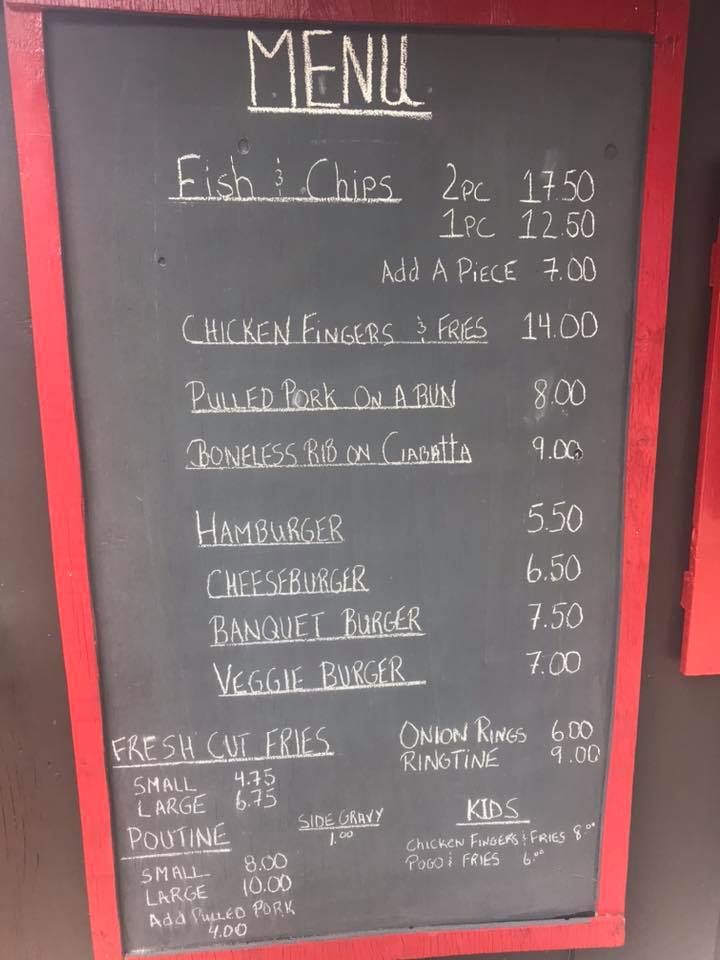 MENU
Fish & Chips 2PC 17.50
1PC 12.50
Add A Piece 7.00
CHICKEN FINGERS & FRIES 14.00
PULLED PORK ON A BUN 8.00
BONELESS RIB ON CIABATTA 9.00
HAMBURGER 5.50
CHEESEBURGER 6.50
BANQUET BURGER 7.50
VEGGIE BURGER 7.00
FRESH CUT FRIES
SMALL 4.75
LARGE 6.75
ONION RINGS 6.00
RINGTINE 9.00
POUTINE
SMALL 8.00
LARGE 10.00
Add PULLED PORK
4.00
SIDE GRAVY
1.00
KIDS
CHICKEN FINGERS & FRIES 8.00
POGO & FRIES 6.00